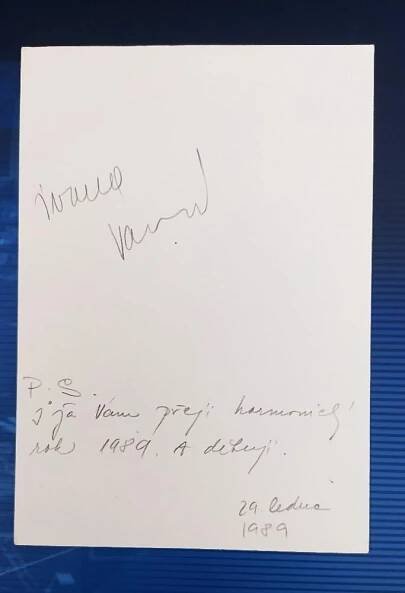 Ivana
P.S.
i já Vám přeji harmonický
rok 1989. A děkuji.
29. ledna
1989